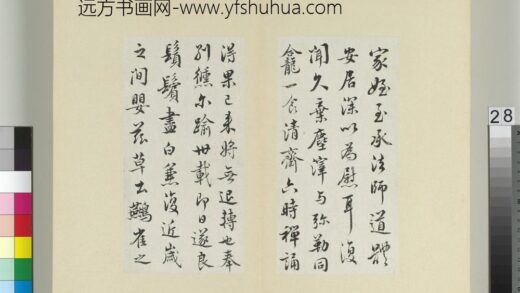 远方书画网-www.yfshuhua.com
家姪至承法師道體
安居深以為慰耳復
聞久棄塵滓与弥勒同
龕一食清齋六時禪誦
得果已來將無退轉也奉
別倐尔踰卅載即日遂良
鬚鬢盡白兼復近歲
之間嬰茲草土鷰雀之
28